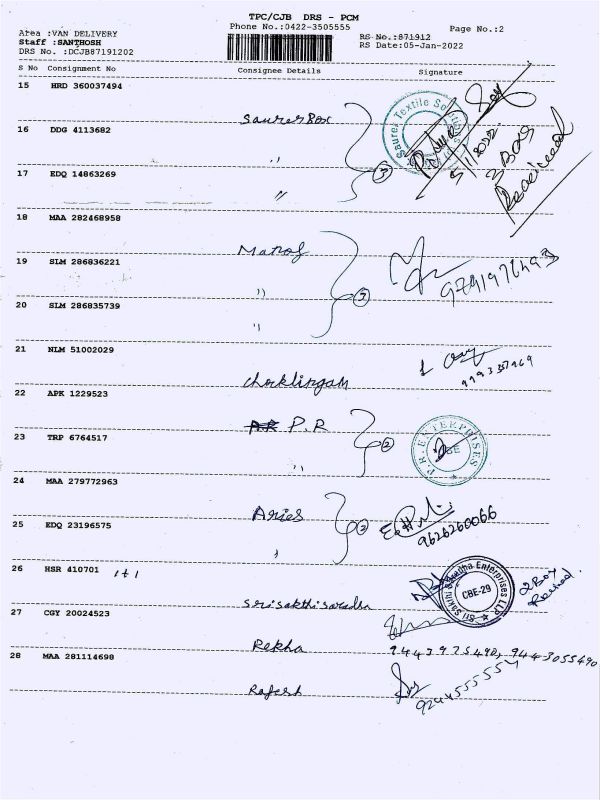 TPC/CJB DRS - PCM
Phone No.:0422-3505555
Page No.:2
Area :VAN DELIVERY
Staff :SANTHOSH
DRS No. :DCJB87191202
RS No.:871912
RS Date:05-Jan-2022
S No Consignment No Consignee Details Signature
15 HRD 360037494
Saurer 8ox
Saurer Textile Solutions
16 DDG 4113682
〃
3
3 BOX
Received
17 EDQ 14863269
〃
18 MAA 282468958
Manoj
19 SLM 286836221
〃
3
9791976493
20 SLM 286835739
〃
21 NLM 51002029
Chocklingam
22 APK 1229523
P.R
P.R. ENTERPRISES
CBE
23 TRP 6764517
〃
2
24 MAA 279772963
Aries
2
9626260066
25 EDQ 23196575
〃
26 HSR 410701 1+1
Sri sakthi saradha
Sri Sakthi Saradha Enterprises LLP
CBE-29
2 Box
27 CGY 20024523
Rekha
9443975490, 9443055490
28 MAA 281114698
Rajesh
9244555554